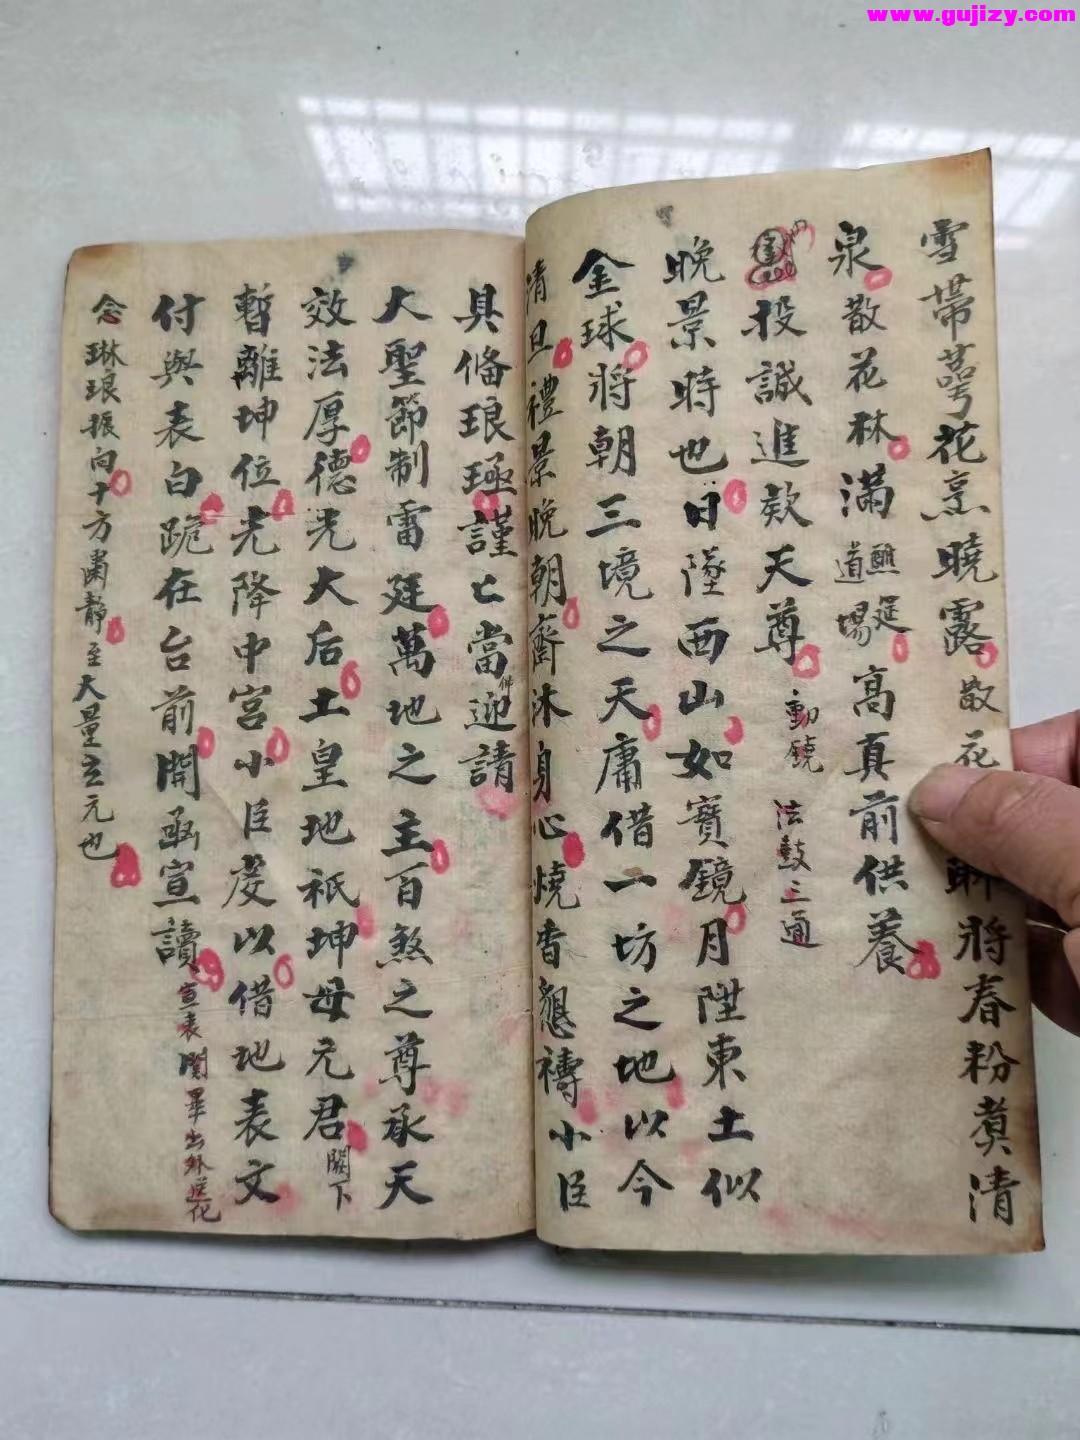 www.gujizy.com
雪帶萼花烹曉露散花 將春粉煑清
泉散花林滿道場醮筵高真前供養
投誠進款天尊 動鐃 法鼓三通
晚景時也日墜西山如寶鏡月陞東土似
金球將朝三境之天庸借一坊之地以今
清旦禮景晚朝齋沐身心燒香懇禱小臣
具俻琅琅謹亡當迎請
大聖節制雷廷萬地之主百煞之尊承天
效法厚德光大后土皇地祇坤母元君闕下
暫離坤位光降中宮小臣虔以借地表文
付與表白跪在台前開函宣讀宣表関畢出外送化
念琳琅振向十方肅静至大量玄元也